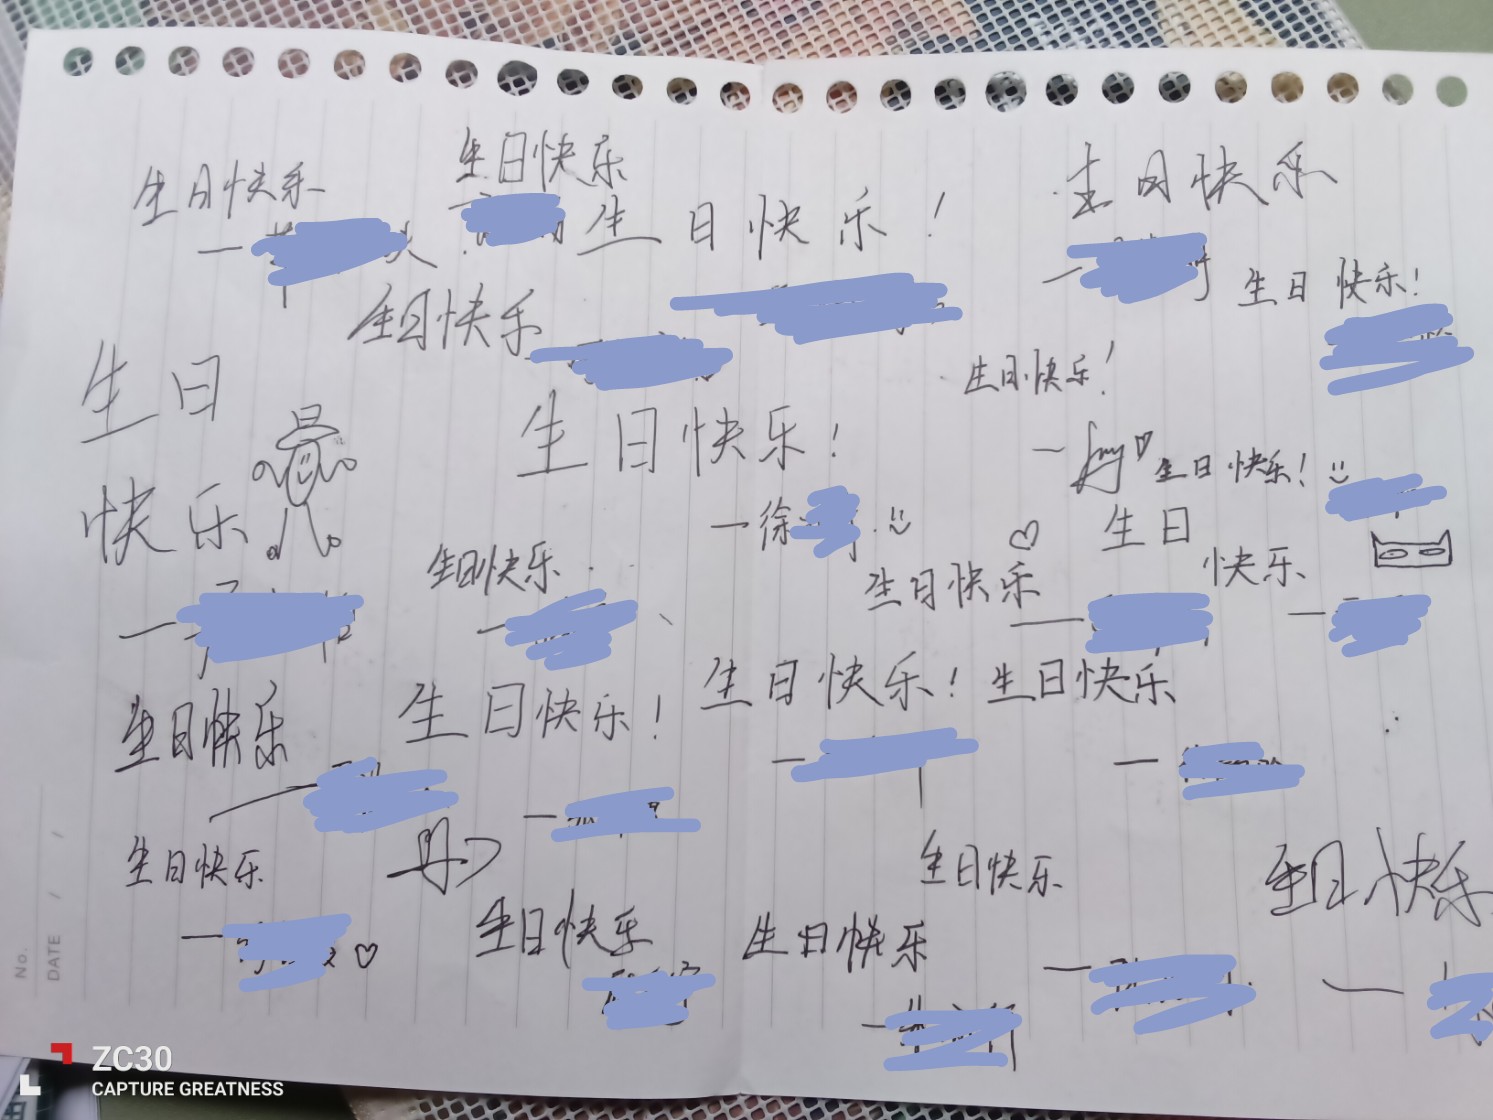 生日快乐
生日快乐
生日快乐！
生日快乐
生日快乐！
生日快乐
生日快乐！
生日
快乐
生日快乐！
一徐
生日快乐！
生日
快乐
生日快乐
生日快乐
生日快乐
生日快乐！
生日快乐！
生日快乐
生日快乐
生日快乐
生日快乐
生日快乐
生日快乐
No.
DATE / /
ZC30
CAPTURE GREATNESS